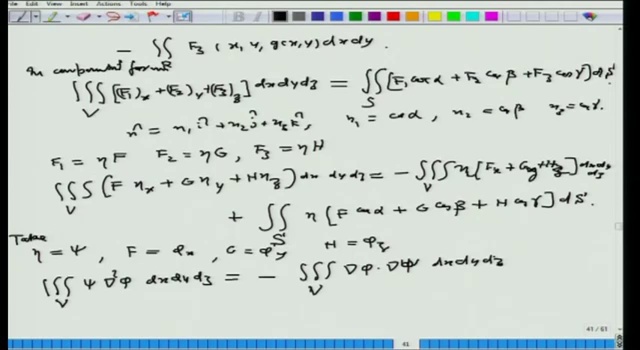 View Insert Actions Tools Help
- ∬_R F₃ (x, y, g(x,y)) dx dy.
In component form
∭_V [(F₁)_x + (F₂)_y + (F₃)_z] dx dy dz = ∬_S [F₁ cos α + F₂ cos β + F₃ cos γ] dS
n̂ = n₁ î + n₂ ĵ + n₃ k̂, n₁ = cos α, n₂ = cos β n₃ = cos γ.
F₁ = ηF F₂ = ηG, F₃ = ηH
∭_V (F η_x + G η_y + H η_z) dx dy dz = - ∭_V η [F_x + G_y + H_z] dx dy dz
+ ∬_S η [F cos α + G cos β + H cos γ] dS.
Take
η = ψ, F = φ_x, G = φ_y H = φ_z
∭_V ψ ∇²φ dx dy dz = - ∭_V ∇φ · ∇ψ dx dy dz
41 / 61
41